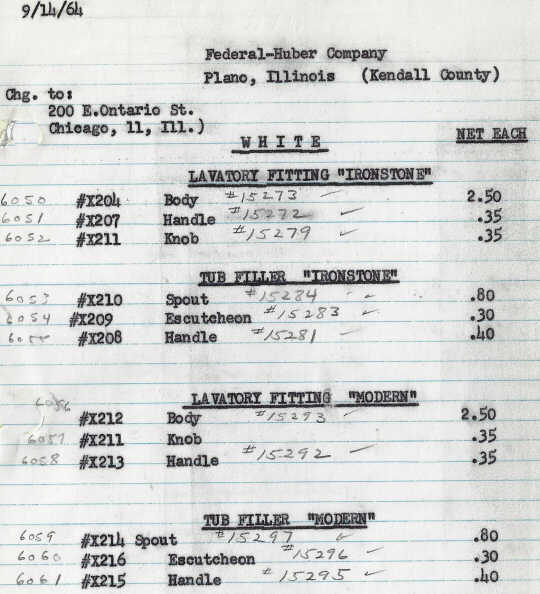 9/14/64
Federal-Huber Company
Plano, Illinois (Kendall County)
Chg. to:
200 E.Ontario St.
Chicago, 11, Ill.)
WHITE
NET EACH
LAVATORY FITTING "IRONSTONE"
6050 #X204 Body #15273 2.50
6051 #X207 Handle #15272 .35
6052 #X211 Knob #15279 .35
TUB FILLER "IRONSTONE"
6053 #X210 Spout #15284 .80
6054 #X209 Escutcheon #15283 .30
#X208 Handle #15281 .40
LAVATORY FITTING "MODERN"
6056
#X212 Body #15293 2.50
6057 #X211 Knob .35
6058 #X213 Handle #15292 .35
TUB FILLER "MODERN"
6059 #X214 Spout #15297 .80
6060 #X216 Escutcheon #15296 .30
6061 #X215 Handle #15295 .40